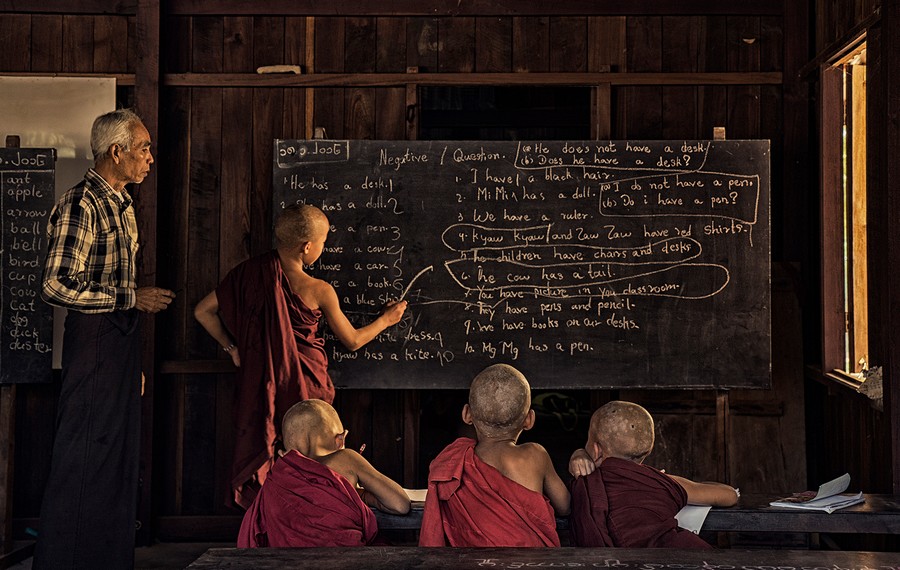 ant
apple
arrow
ball
bell
bird
cup
cow
Cat
dog
duck
duster
Negative / Question.
(a) He does not have a desk.
(b) Doss he have a desk?
He has a desk. 1
has a doll. 2
a pen. 3
have a cow. 4
have a car. 5
a book. 6
a blue Shi
Kyaw has a kite. 10
1. I have a black hair.
2. Mi Mi has a doll.
(a) I do not have a pen.
(b) Do i have a pen?
3. We have a ruler.
4. Kyaw Kyaw and Zaw Zaw have red shirts.
5. he children have chairs and desks
6. The cow has a tail.
7. You have picture in you classroom.
8. They have pens and pencil.
9. We have books on our desks.
10. Mg Mg has a pen.